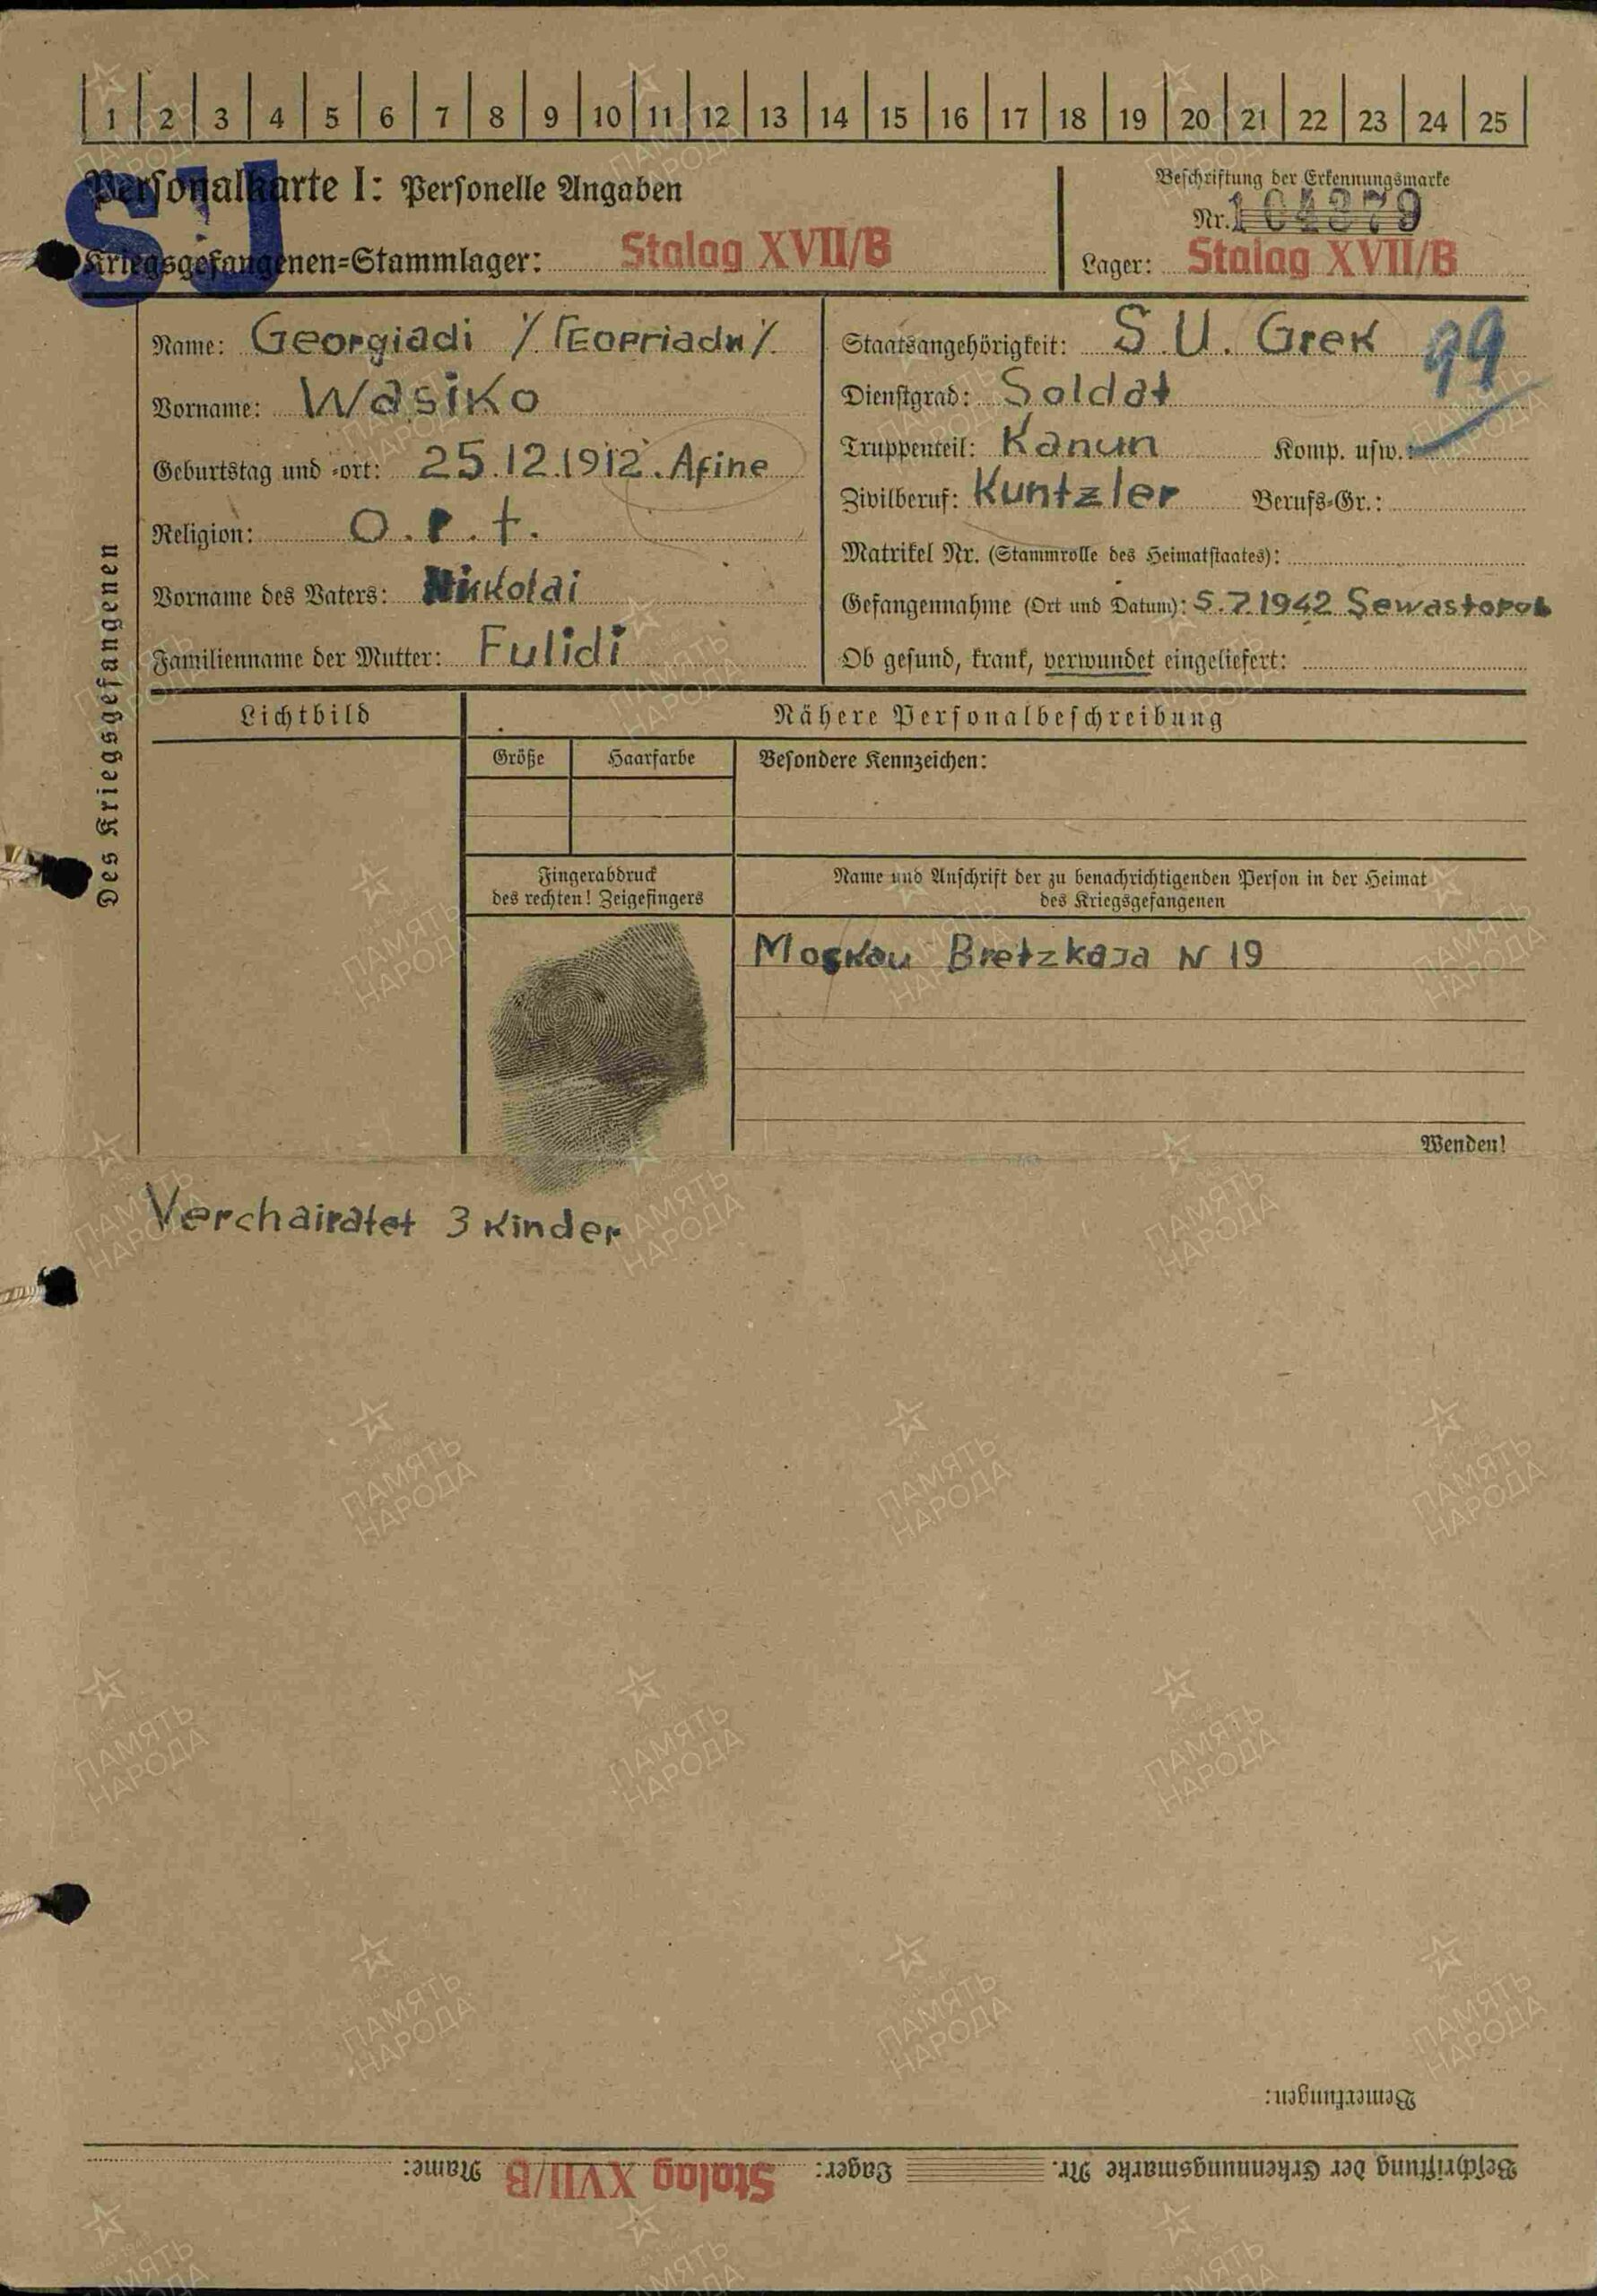 1 2 3 4 5 6 7 8 9 10 11 12 13 14 15 16 17 18 19 20 21 22 23 24 25
SU
Personalkarte I: Personelle Angaben
Kriegsgefangenen-Stammlager: Stalag XVII/B
Beschriftung der Erkennungsmarke
Nr. 104379
Lager: Stalag XVII/B
Des Kriegsgefangenen
Name: Georgiadi /Георгiаdи/
Vorname: Wasiko
Geburtstag und -ort: 25.12.1912. Afine
Religion: O.r.t.
Vorname des Vaters: Nikolai
Familienname der Mutter: Fulidi
Staatsangehörigkeit: S.U. Grek 99
Dienstgrad: Soldat
Truppenteil: Kanun Komp. usw.:
Zivilberuf: Kuntzler Berufs-Gr.:
Matrikel Nr. (Stammrolle des Heimatstaates):
Gefangennahme (Ort und Datum): 5.7.1942 Sewastopol
Ob gesund, krank, verwundet eingeliefert:
Lichtbild
Nähere Personalbeschreibung
Größe Haarfarbe Besondere Kennzeichen:
Fingerabdruck
des rechten! Zeigefingers
Name und Anschrift der zu benachrichtigenden Person in der Heimat
des Kriegsgefangenen
Moskau Bretzkaja N 19
Wenden!
Verchairatet 3 Kinder
Bemerkungen:
Beschriftung der Erkennungsmarke Nr. Lager: Stalag XVII/B Name:
ПАМЯТЬ
НАРОДА